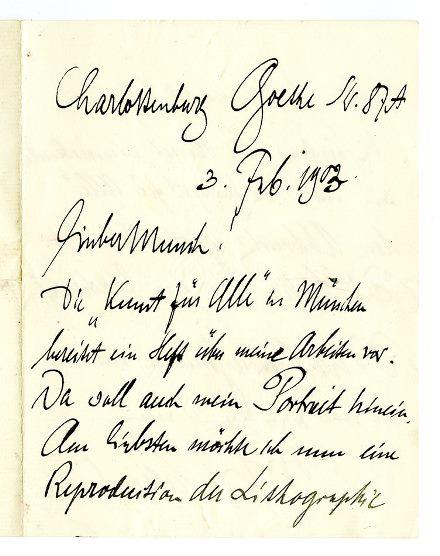 Charlottenburg Goethe St. 87A
3. Feb. 1903.
Lieber Munch!
Die „Kunst für Alle“ in München
bereitet ein Heft über meine Arbeiten vor.
Da soll auch mein Portrait hinein.
Am liebsten möchte ich nun eine
Reproduction der Lithographie